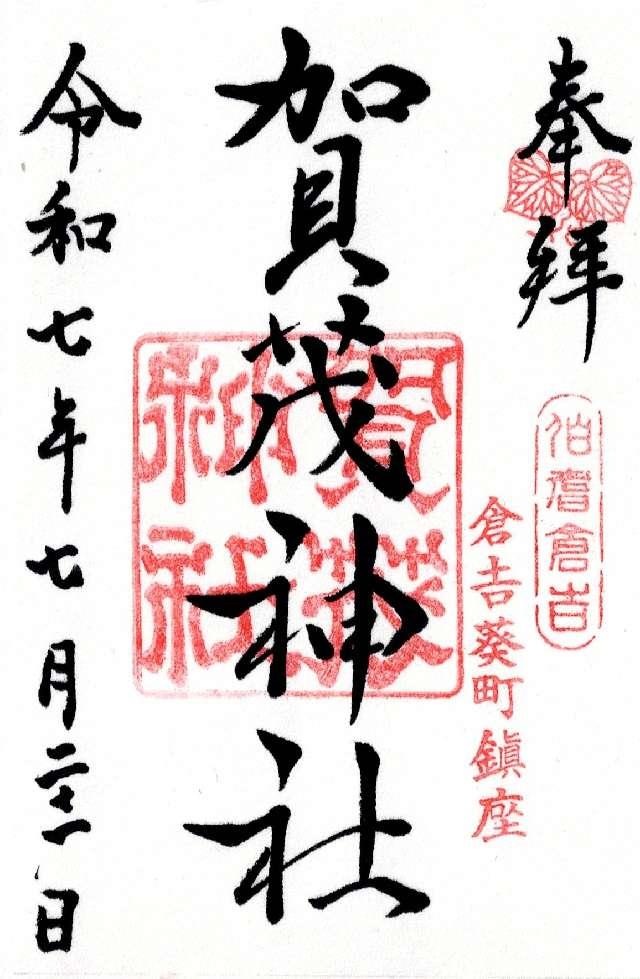 奉拝
伯耆倉吉
倉吉葵町鎮座
賀茂神社
賀茂神社
令和七年七月二十一日